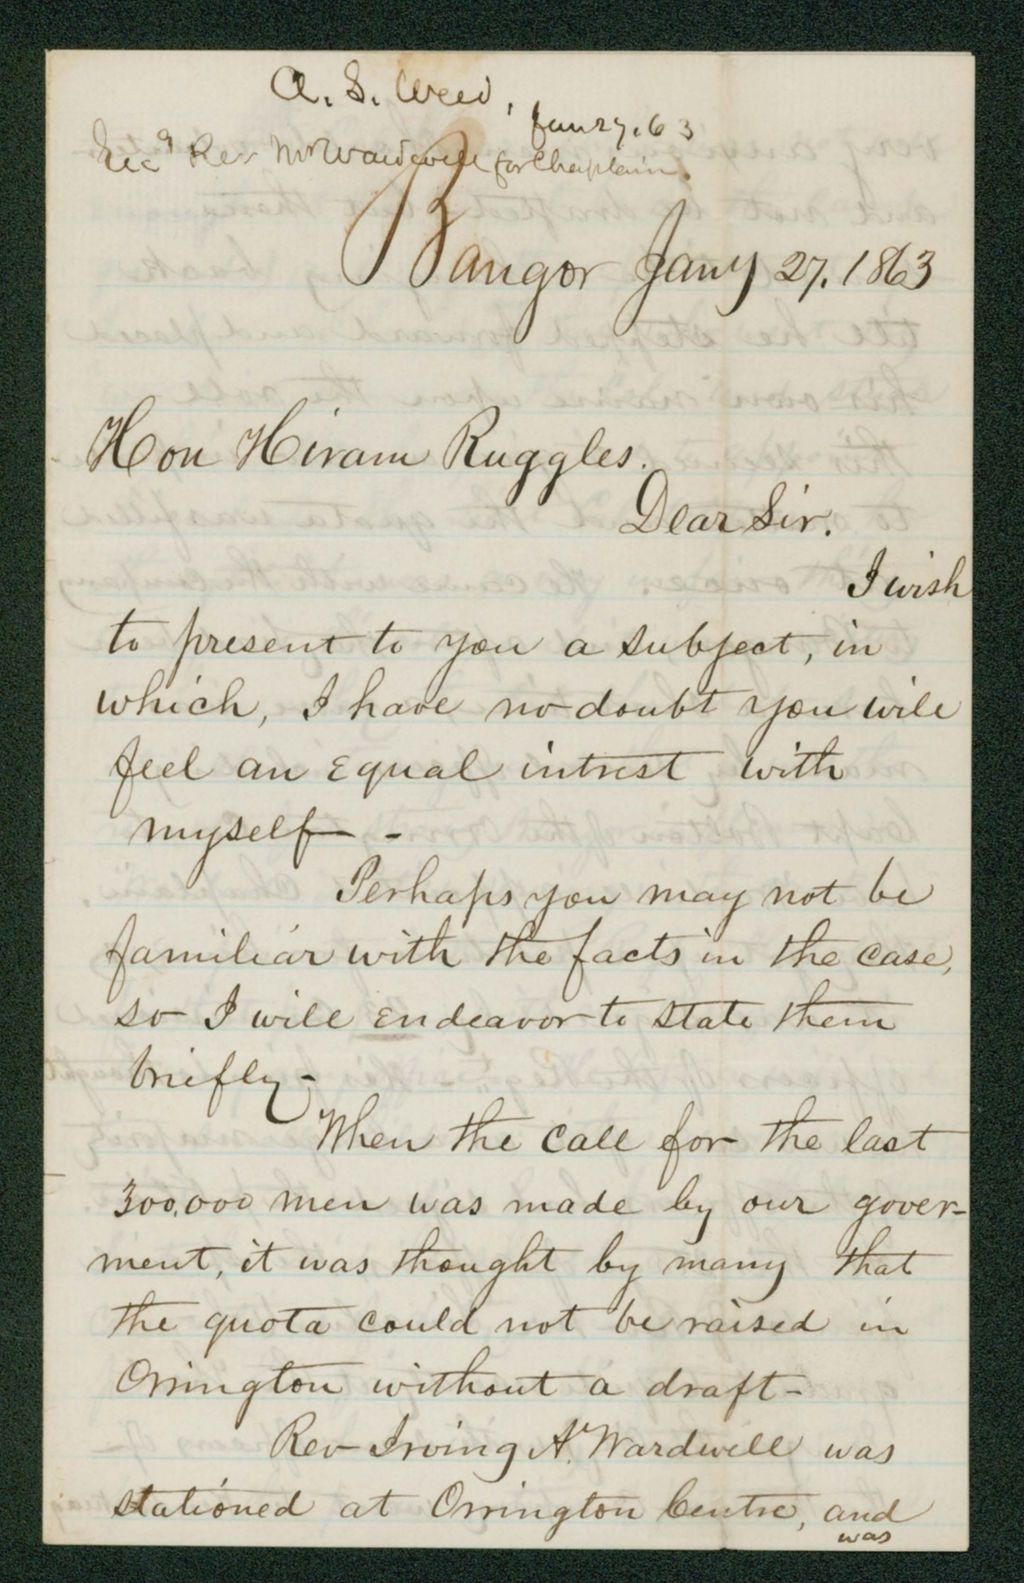 A. S. Weed,
Jan 27. 63
Rec^d Rev Mr Wardwell for Chaplain.
Bangor Jany 27, 1863
Hon Hiram Ruggles.
Dear Sir.
I wish
to present to you a subject, in
which, I have no doubt you will
feel an Equal intrest with
myself -
Perhaps you may not be
familiar with the facts in the case,
so I will Endeavor to state them
briefly -
When the call for the last
300,000 men was made by our gover-
ment, it was thought by many that
the quota could not be raised in
Orrington without a draft -
Rev Irving A. Wardwell was
stationed at Orrington Centre, and
was